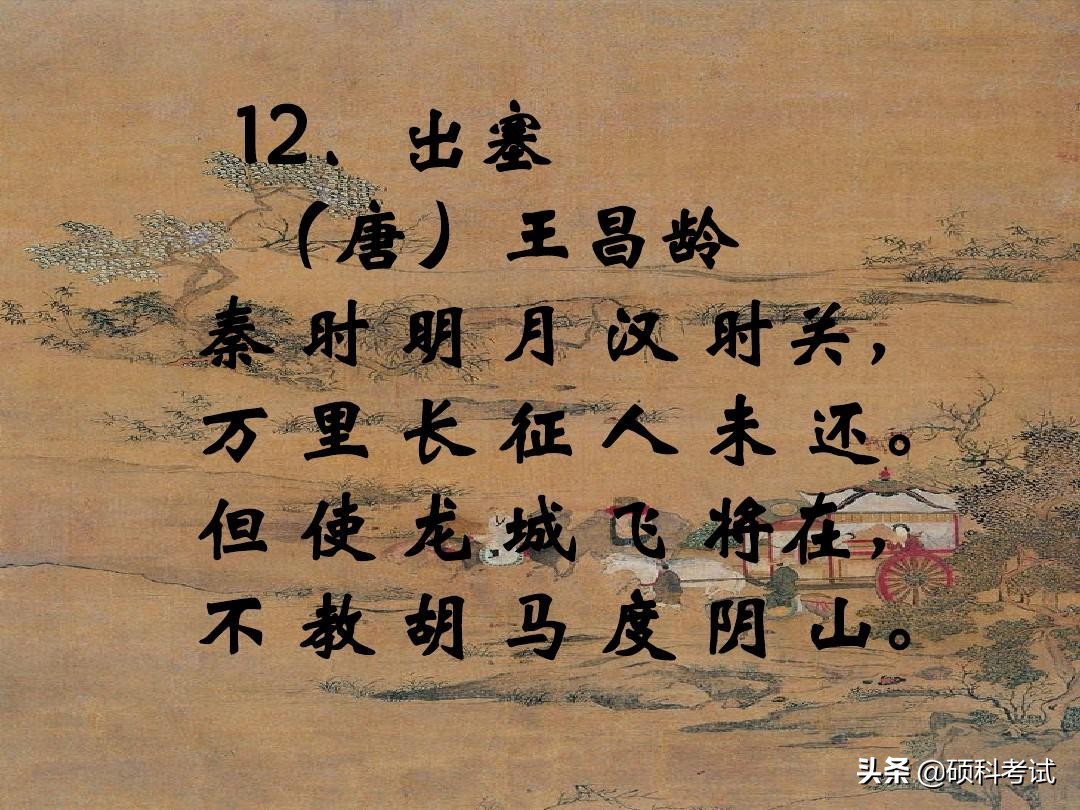 12、出塞
（唐）王昌龄
秦时明月汉时关，
万里长征人未还。
但使龙城飞将在，
不教胡马度阴山。
头条 @硕科考试